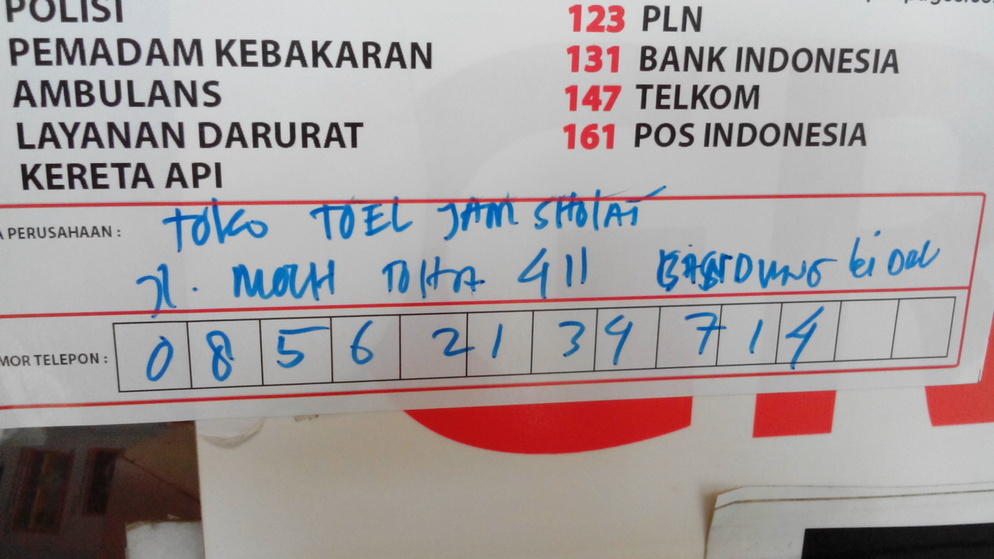 POLISI
PEMADAM KEBAKARAN
AMBULANS
LAYANAN DARURAT
KERETA API
123 PLN
131 BANK INDONESIA
147 TELKOM
161 POS INDONESIA
PERUSAHAAN : TOKO TOEL JAM SHOLAT
Jl. MOCH TOHA 411 BANDUNG KIDUL
TELEPON : 0 8 5 6 2 1 3 9 7 1 4